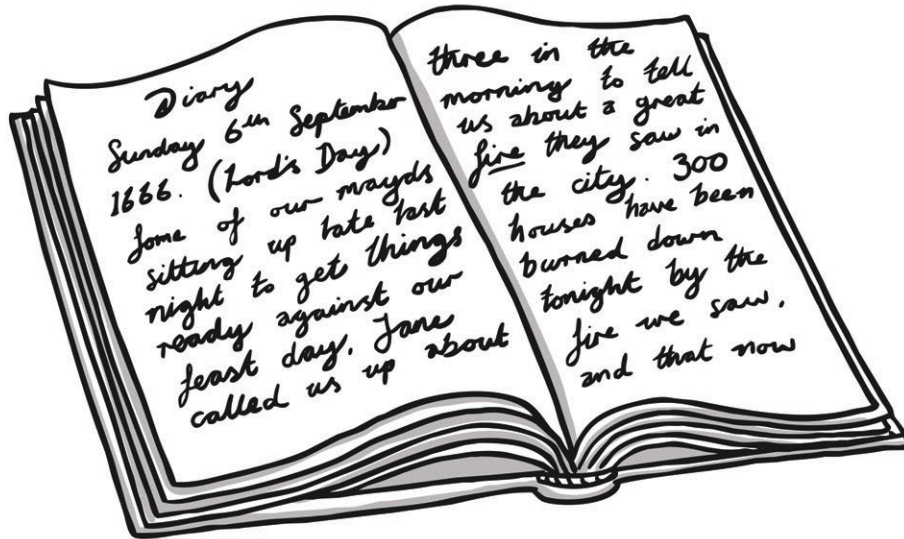 Diary
Sunday 6th September
1666. (Lord's Day)
Some of our mayds
sitting up late last
night to get things
ready against our
feast day. Jane
called us up about
three in the
morning to tell
us about a great
fire they saw in
the city. 300
houses have been
burned down
tonight by the
fire we saw.
and that now